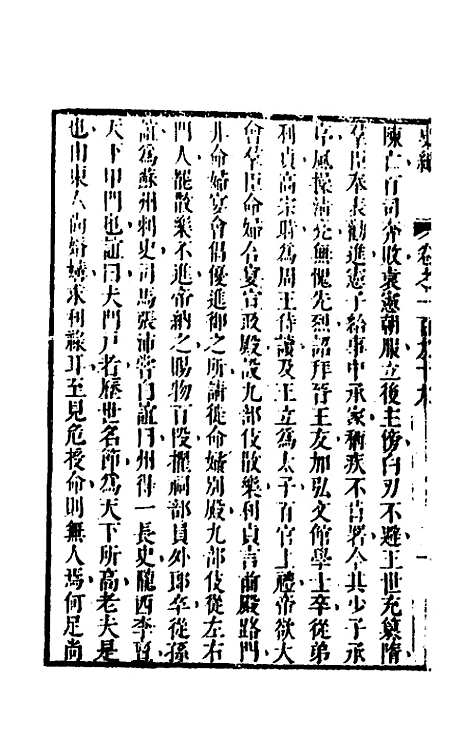 史緯 卷之一百九十九
陳亡百司奔散袁憲朝服立後主傍白刃不避王世充篡隋
羣臣奉表勸進憲子給事中承家稱疾不肯署今其少子承
序風操淸亮無愧先烈詔拜晉王友加弘文館學士卒從弟
利貞高宗時爲周王侍讀及王立爲太子百官上禮帝欲大
會羣臣命婦合宴宣政殿設九部伎散樂利貞言前殿路門
非命婦宴會倡優進御之所請徙命婦別殿九部伎從左右
門入罷散樂不進帝納之賜物百段擢祠部員外郎卒從孫
誼爲蘇州刺史司馬張沛嘗白誼曰州得一長史隴西李亶
天下甲門也誼曰夫門戸者歷世名節爲天下所高老夫是
也山東人尚婚媾求利祿耳至見危授命則無人焉何足尚